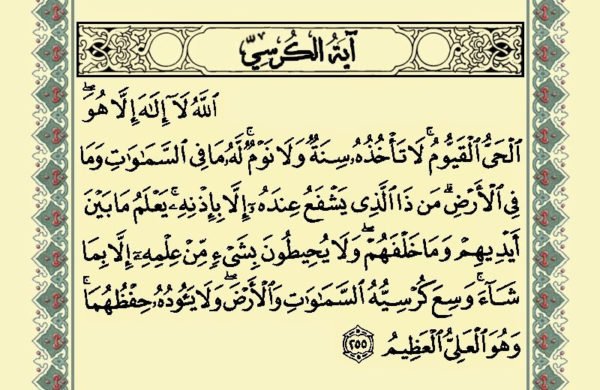 آيَةُ الْكُرْسِيِّ
ٱللَّهُ لَآ إِلَٰهَ إِلَّا هُوَ
ٱلْحَىُّ ٱلْقَيُّومُ ۚ لَا تَأْخُذُهُۥ سِنَةٌ وَلَا نَوْمٌ ۚ لَّهُۥ مَا فِى ٱلسَّمَٰوَٰتِ وَمَا
فِى ٱلْأَرْضِ ۗ مَن ذَا ٱلَّذِى يَشْفَعُ عِندَهُۥٓ إِلَّا بِإِذْنِهِۦ ۚ يَعْلَمُ مَا بَيْنَ
أَيْدِيهِمْ وَمَا خَلْفَهُمْ ۖ وَلَا يُحِيطُونَ بِشَىْءٍ مِّنْ عِلْمِهِۦٓ إِلَّا بِمَا
شَآءَ ۚ وَسِعَ كُرْسِيُّهُ ٱلسَّمَٰوَٰتِ وَٱلْأَرْضَ ۖ وَلَا يَـُٔودُهُۥ حِفْظُهُمَا ۚ
وَهُوَ ٱلْعَلِىُّ ٱلْعَظِيمُ ٢٥٥